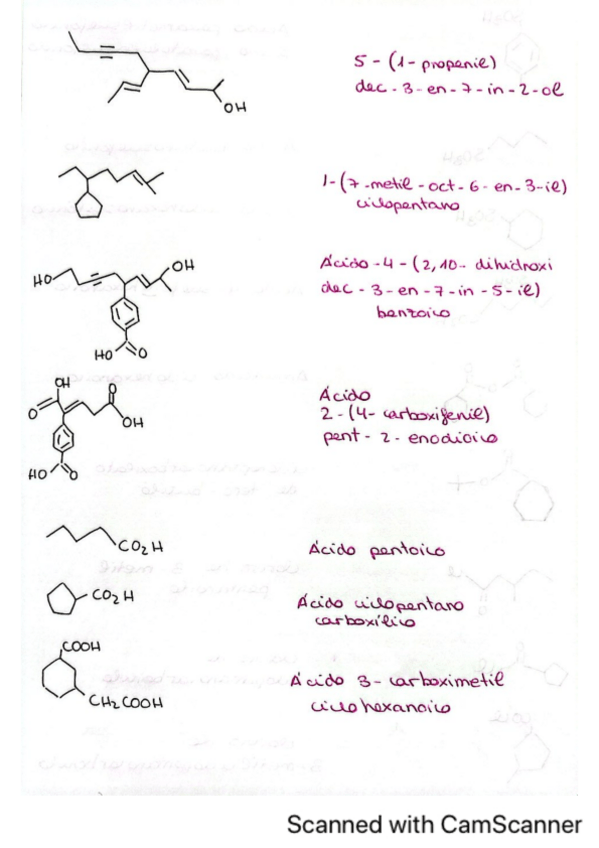 5-(1-propenil)
dec-3-en-7-in-2-ol
OH
1-(7-metil-oct-6-en-3-il)
ciclopentano
HO
OH
HO
O
Ácido-4-(2,10-dihidroxi
dec-3-en-7-in-5-il)
benzoico
OH
O
O
OH
HO
O
Ácido
2-(4-carboxifenil)
pent-2-enodioico
CO2H
Ácido pentoico
CO2H
Ácido ciclopentano
carboxílico
COOH
CH2COOH
Ácido 3-carboximetil
ciclohexanoico
Scanned with CamScanner